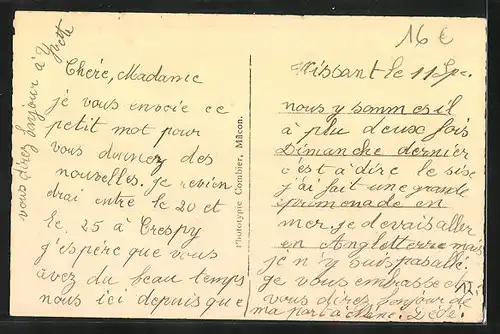 16 €
vous direz bonjour à Yvette
Chère, Madame
je vous envoie ce
petit mot pour
vous donnez des
nouvelles. je revien
drai entre le 20 et
le. 25 à Crespy
j'espère que vous
avez du beau temps
nous ici depuis que
Phototypie Combier, Mâcon.
Wissant le 11
nous y sommes il
à plu deux fois
Dimanche dernier
c'est à dire le six
j'ai fait une grande
promenade en
mer. je devais aller
en Angleterre mais
je n'y suis pas allé.
ge vous embrasse
12.-
vous direz bonjour de
ma part à